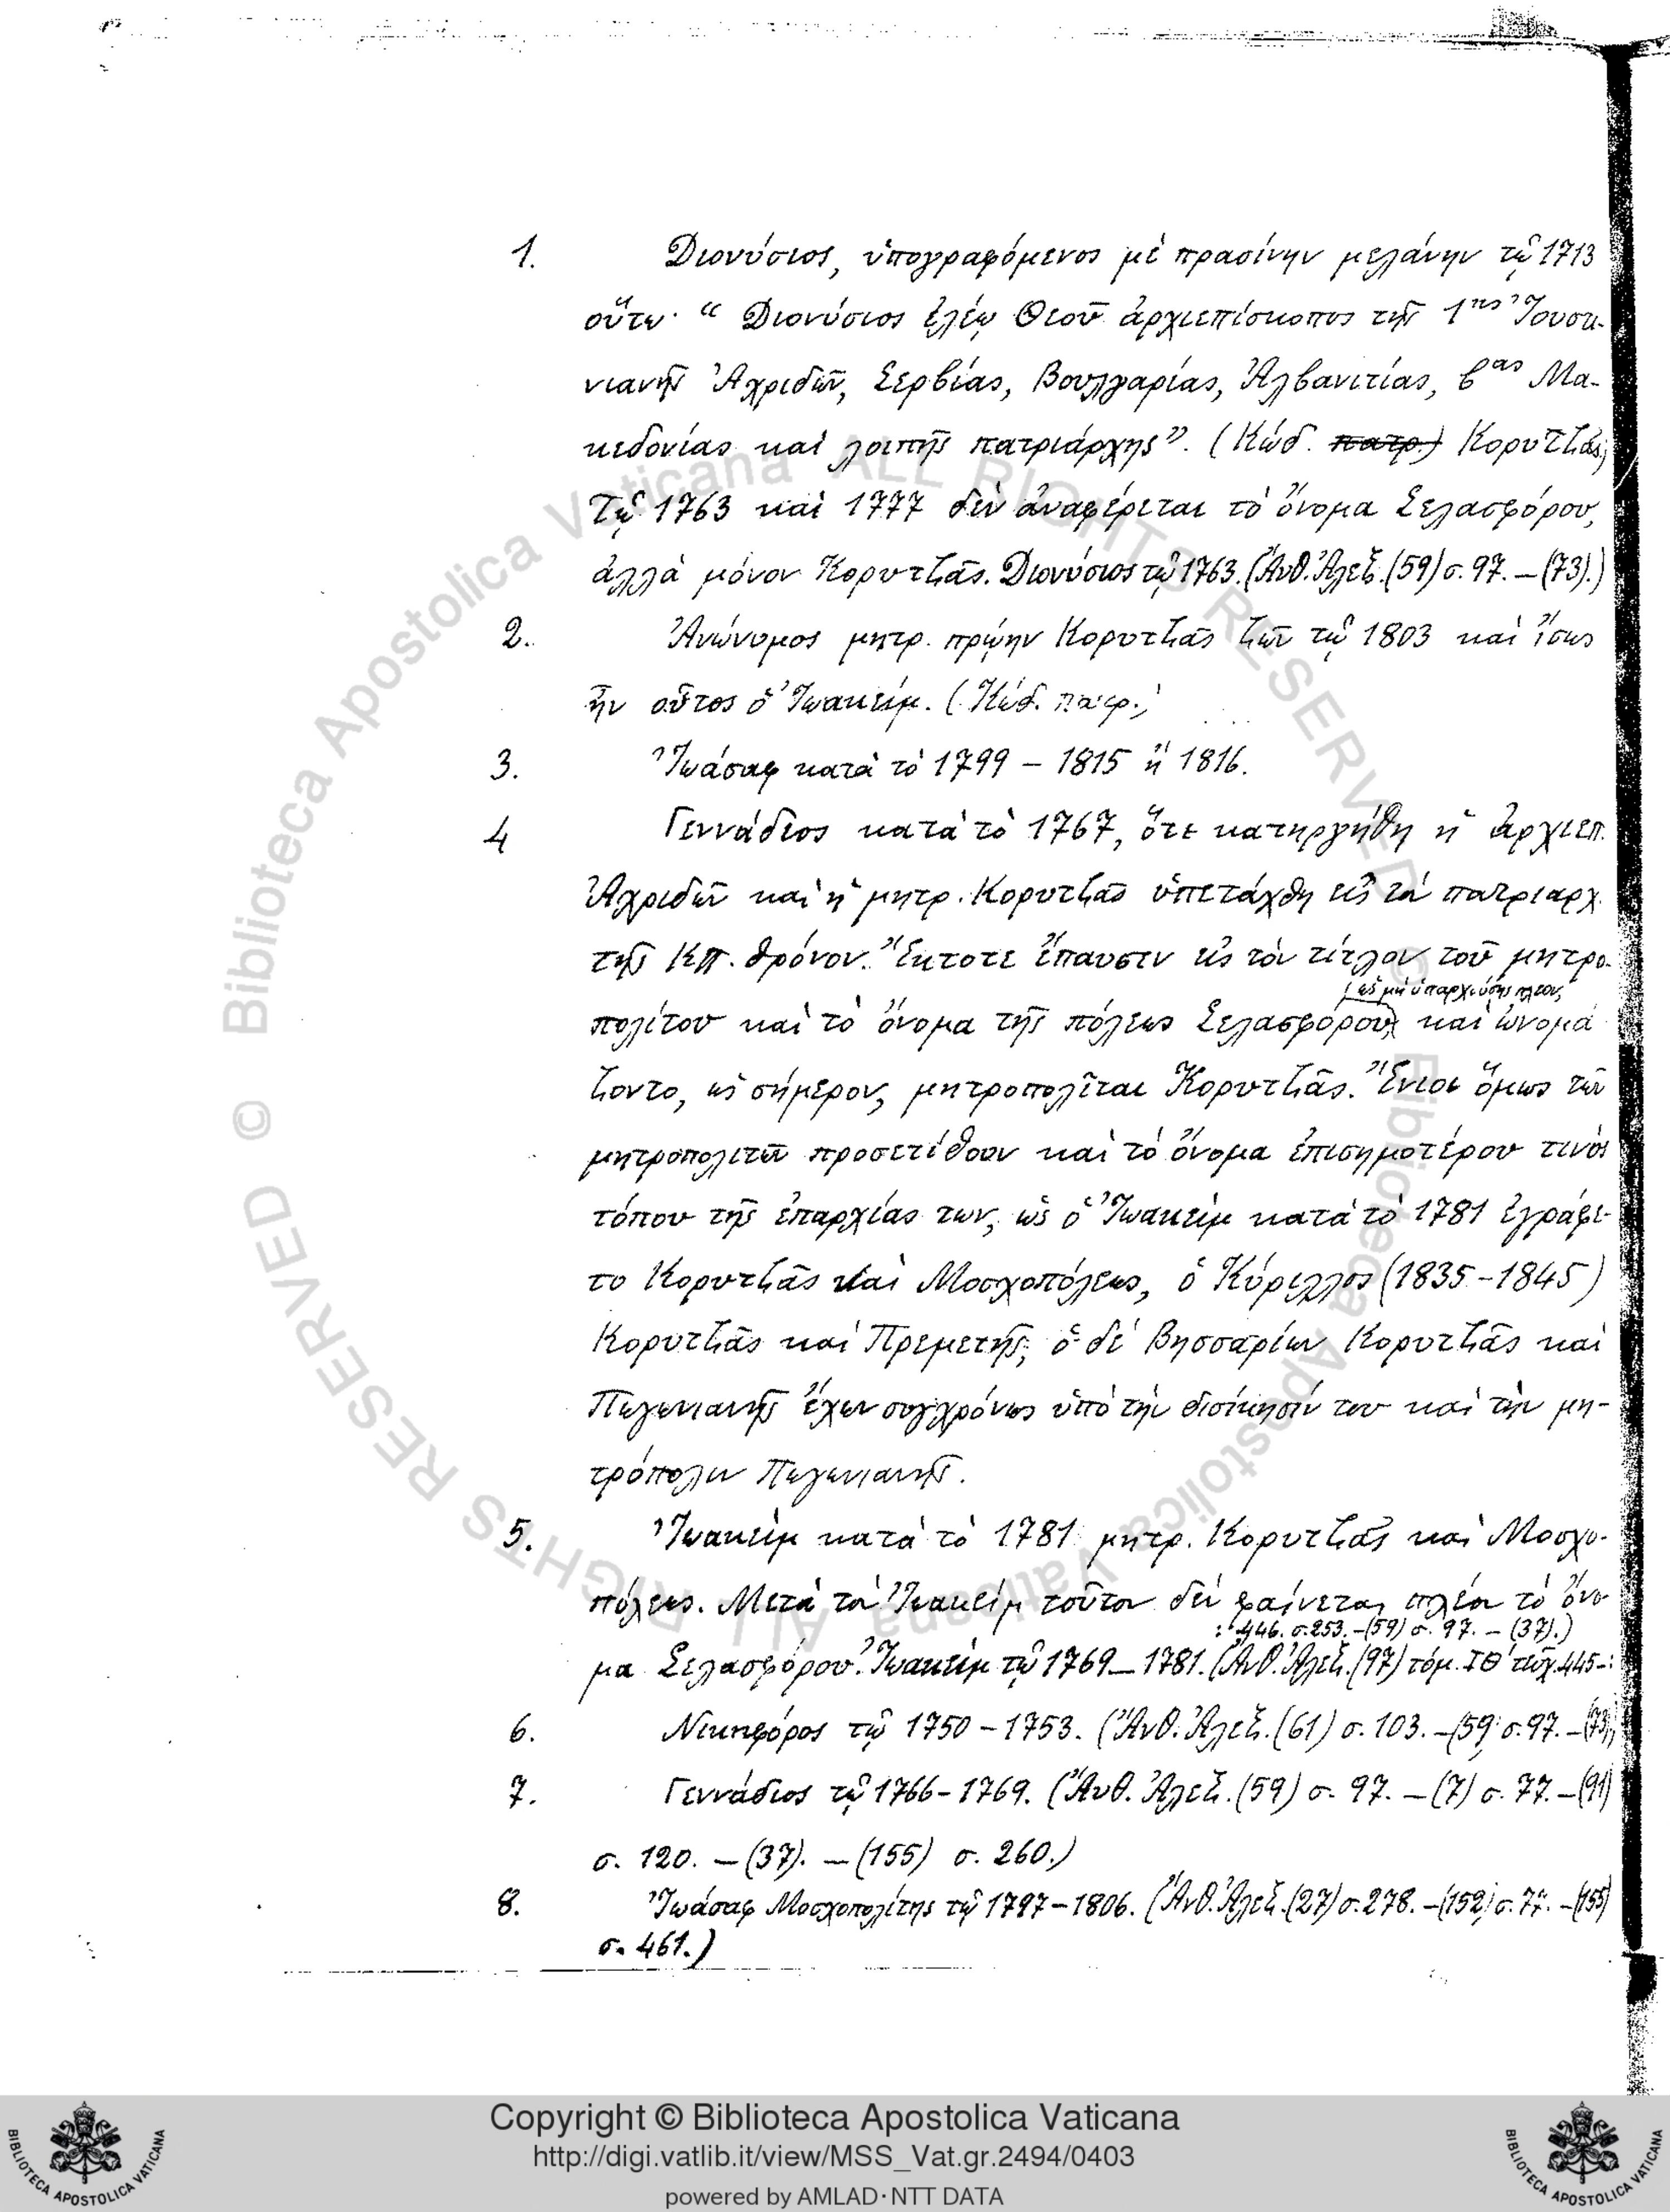 1. Διονύσιος, ὑπογραφόμενος μὲ πρασίνην μελάνην τῷ 1713
οὕτω· “ Διονύσιος ἐλέῳ Θεοῦ ἀρχιεπίσκοπος τῆς 1ης Ἰουστι-
νιανῆς Ἀχριδῶν, Σερβίας, Βουλγαρίας, Ἀλβανιτίας, βας Μα-
κεδονίας καὶ λοιπῆς πατριάρχης”. (Κώδ. πατρ.) Κορυτζᾶς;
Τῷ 1763 καὶ 1777 δὲν ἀναφέρεται τὸ ὄνομα Σελασφόρου,
ἀλλὰ μόνον Κορυτζᾶς. Διονύσιος τῷ 1763. (Ἀνθ. Ἀλεξ. (59) σ. 97. – (73).)
2. Ἀνώνυμος μητρ. πρῴην Κορυτζᾶς ζῶν τῷ 1803 καὶ ἴσως
ἦν οὗτος ὁ Ἰωακείμ. (Κώδ. πατρ.)
3. Ἰωάσαφ κατὰ τὸ 1799 – 1815 ἢ 1816.
4 Γεννάδιος κατὰ τὸ 1767, ὅτε κατηργήθη ἡ ἀρχιεπ.
Ἀχριδῶν καὶ ἡ μητρ. Κορυτζᾶς ὑπετάχθη εἰς τὸν πατριαρχ.
τῆς ΚΠ. θρόνον. Ἔκτοτε ἔπαυσεν εἰς τὸν τίτλον τοῦ μητρο-
ὡς μὴ ὑπαρχούσης πλέον,
πολίτου καὶ τὸ ὄνομα τῆς πόλεως Σελασφόρου, καὶ ὠνομά
ζοντο, ὡς σήμερον, μητροπολῖται Κορυτζᾶς. Ἔνιοι ὅμως τῶν
μητροπολιτῶν προσετίθουν καὶ τὸ ὄνομα ἐπισημοτέρου τινὸς
τόπου τῆς ἐπαρχίας των, ὡς ὁ Ἰωακεὶμ κατὰ τὸ 1781 ἐγράφε-
το Κορυτζᾶς καὶ Μοσχοπόλεως, ὁ Κύριλλος (1835-1845)
Κορυτζᾶς καὶ Πρεμετῆς, ὁ δὲ Βησσαρίων Κορυτζᾶς καὶ
Πωγωνιανῆς ἔχων συγχρόνως ὑπὸ τὴν διοίκησίν του καὶ τὴν μη-
τρόπολιν Πωγωνιανῆς.
5. Ἰωακεὶμ κατὰ τὸ 1781 μητρ. Κορυτζᾶς καὶ Μοσχο-
πόλεως. Μετὰ τὸν Ἰωακεὶμ τοῦτον δὲν φαίνεται πλέον τὸ ὄνο-
: 446. σ. 253. – (59) σ. 97. – (37).)
μα Σελασφόρου. Ἰωακεὶμ τῷ 1769–1781. (Ἀνθ. Ἀλεξ. (97) τόμ. ΙΘ΄ τεῦχ. 445-:
6. Νικηφόρος τῷ 1750 – 1753. (Ἀνθ. Ἀλεξ. (61) σ. 103. – (59) σ. 97. – (73).)
7. Γεννάδιος τῷ 1766-1769. (Ἀνθ. Ἀλεξ. (59) σ. 97. – (7) σ. 77. – (91)
σ. 120. – (37). – (155) σ. 260.)
8. Ἰωάσαφ Μοσχοπολίτης τῷ 1797-1806. (Ἀνθ. Ἀλεξ. (27) σ. 278. – (152) σ. 77. – (155)
σ. 461.)
Copyright © Biblioteca Apostolica Vaticana
http://digi.vatlib.it/view/MSS_Vat.gr.2494/0403
powered by AMLAD·NTT DATA